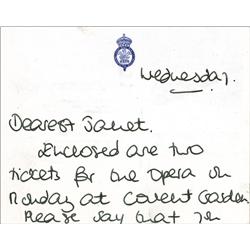 Wednesday.
Dearest Janet.
Enclosed are two
tickets for the Opera on
Monday at Covent Garden
Please say that